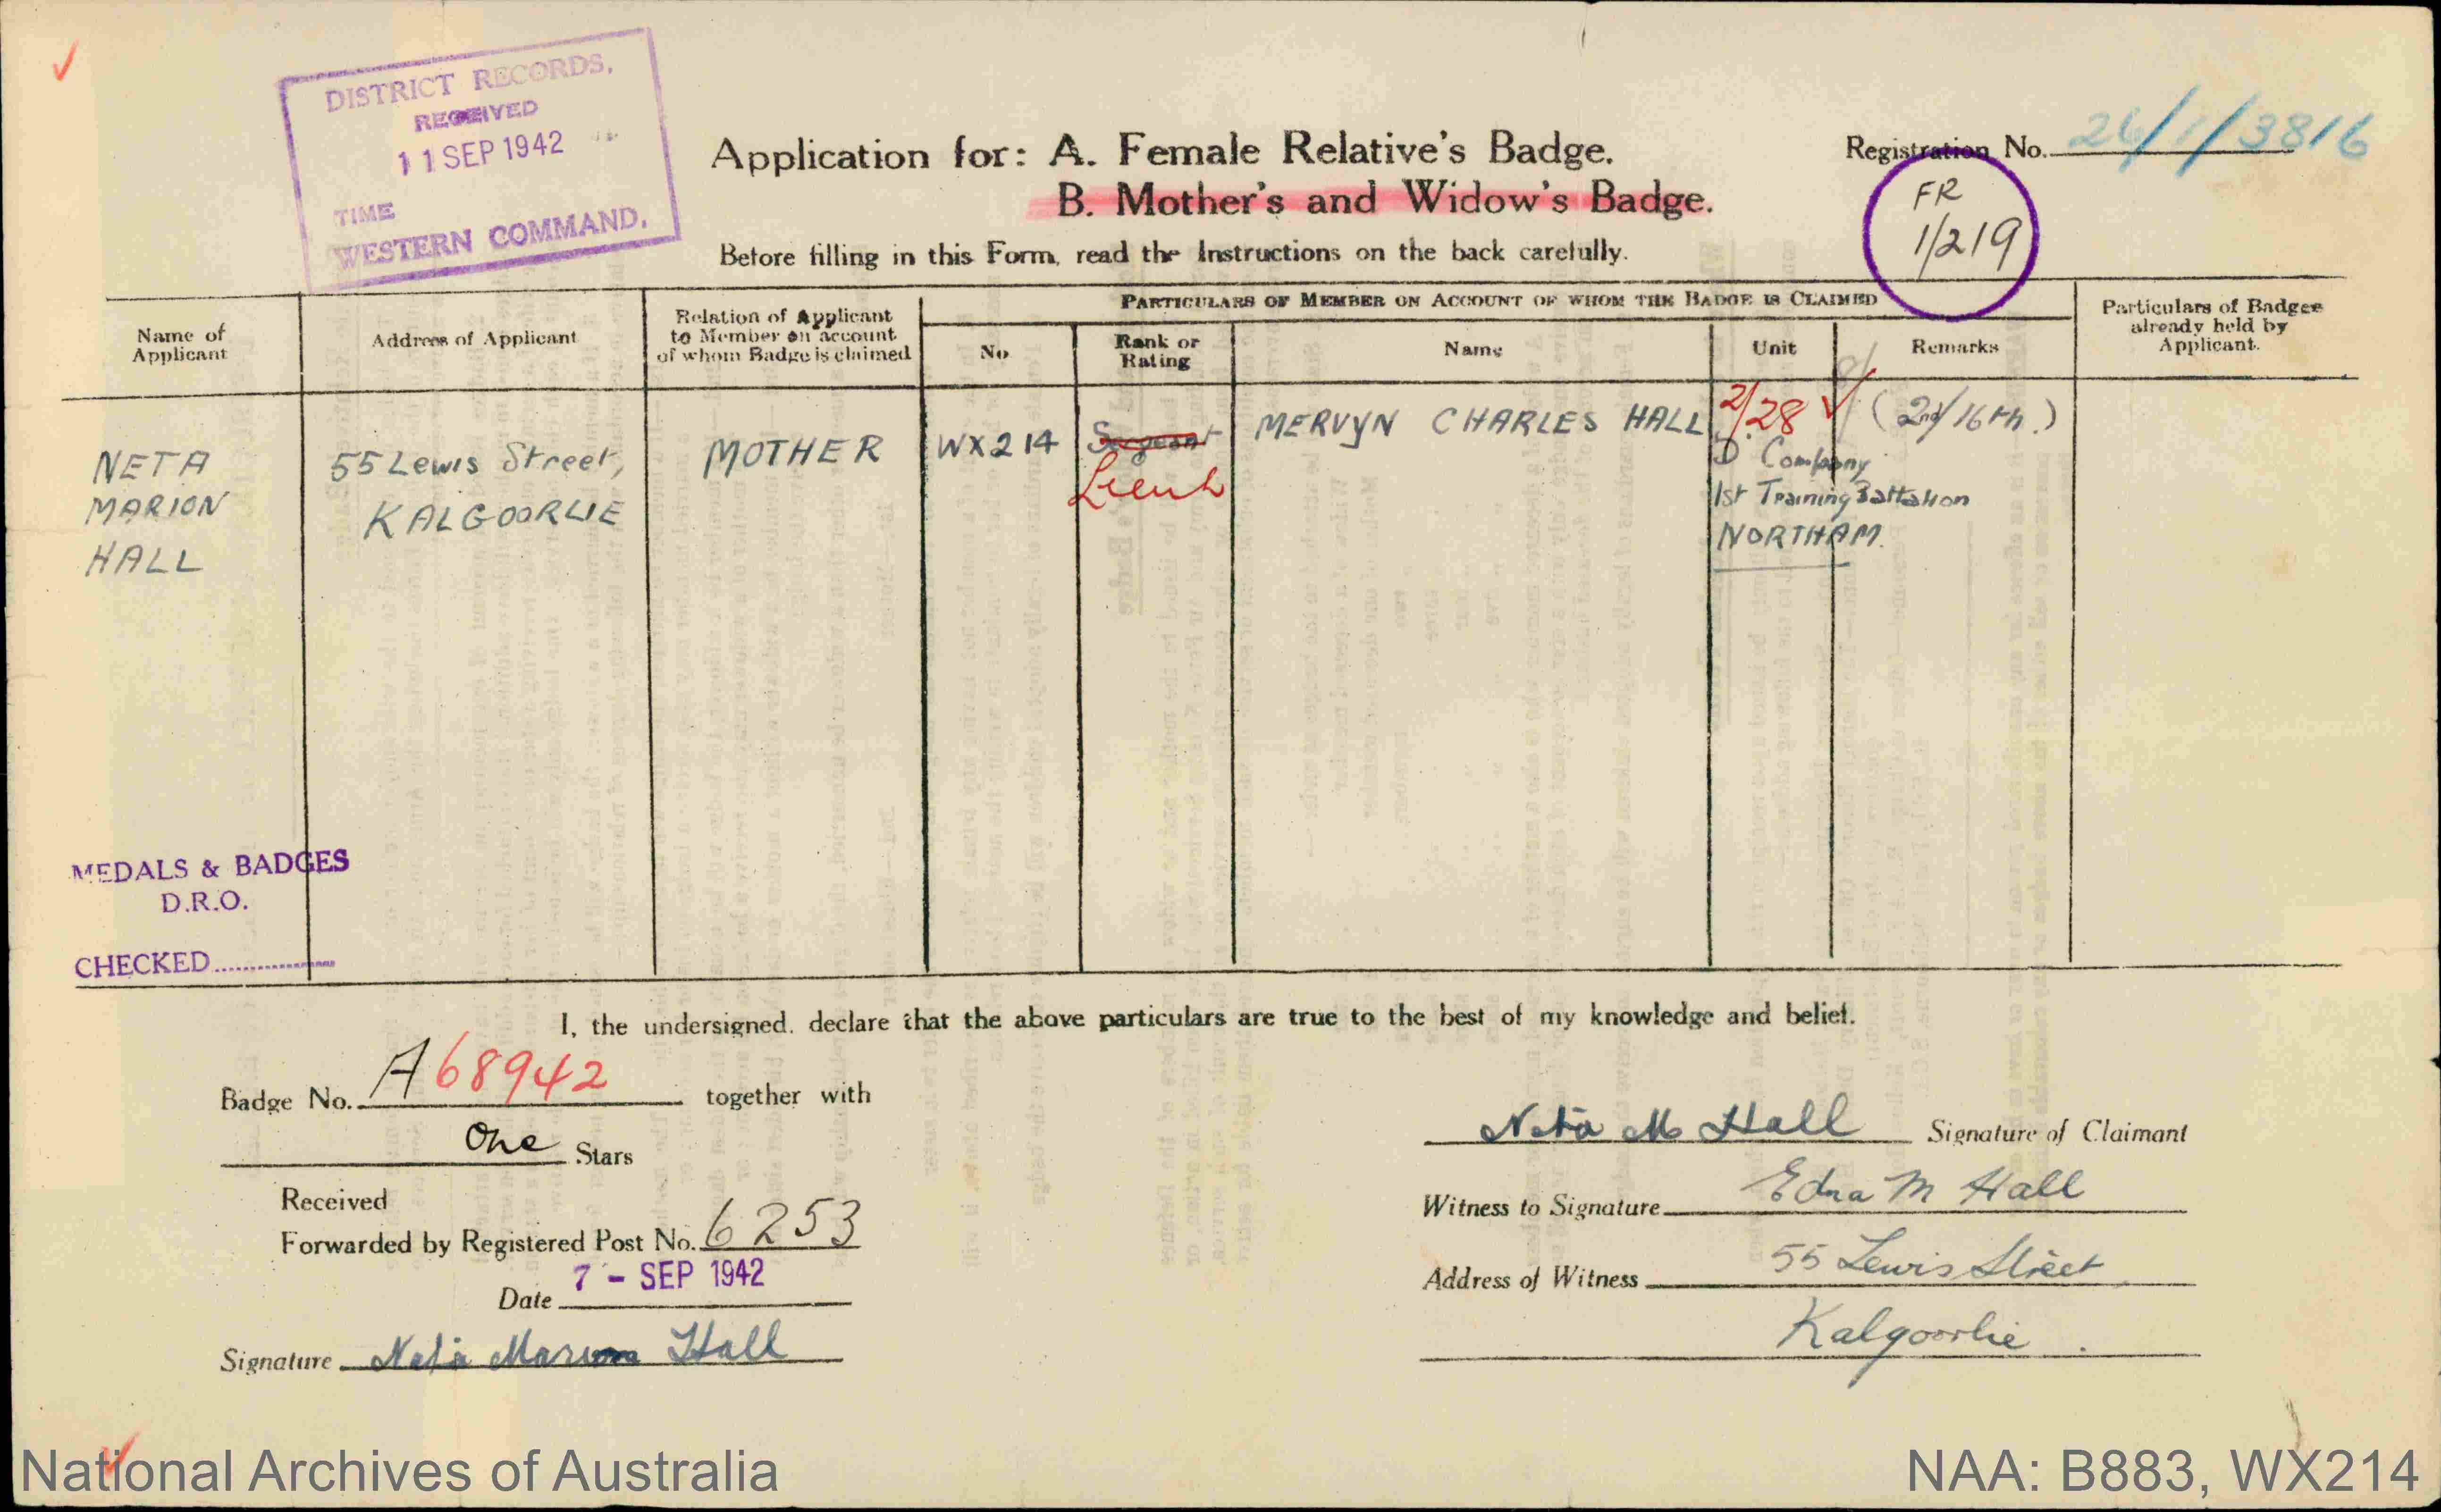 DISTRICT RECORDS,
RECEIVED
11 SEP 1942
TIME
WESTERN COMMAND.
Application for: A. Female Relative's Badge.
B. Mother's and Widow's Badge.
Before filling in this Form, read the Instructions on the back carefully.
Registration No. 26/1/3816
FR
1/219
Name of Applicant
Address of Applicant
Relation of Applicant to Member on account of whom Badge is claimed
PARTICULARS OF MEMBER ON ACCOUNT OF WHOM THE BADGE IS CLAIMED
No
Rank or Rating
Name
Unit
Remarks
Particulars of Badges already held by Applicant.
NETA
MARION
HALL
55 Lewis Street,
KALGOORLIE
MOTHER
WX214
Sergeant
Lieut
MERVYN CHARLES HALL
2/28
(2nd/16th.)
D Company
1st Training Battalion
NORTHAM.
MEDALS & BADGES
D.R.O.
CHECKED
I, the undersigned, declare that the above particulars are true to the best of my knowledge and belief.
Badge No. A68942 together with
One Stars
Received
Forwarded by Registered Post No. 6253
Date 7 - SEP 1942
Signature Neta Marion Hall
Neta M Hall Signature of Claimant
Witness to Signature Edna M Hall
Address of Witness 55 Lewis Street
Kalgoorlie.
National Archives of Australia
NAA: B883, WX214